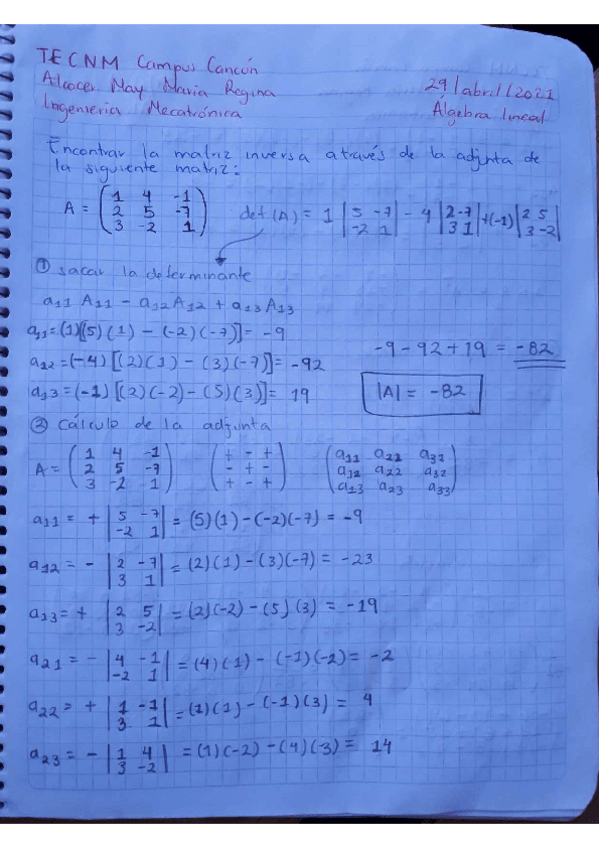 TECNM Campus Cancún
Alcocer May Maria Regina
29/abril/2021
Ingenieria Mecatrónica
Álgebra lineal
Encontrar la matriz inversa através de la adjunta de
la siguiente matriz:
A = (1 4 -1
2 5 -7
3 -2 1)
det(A) = 1 |5 -7
-2 1| - 4 |2 -7
3 1| +(-1) |2 5
3 -2|
① sacar la determinante
a11 A11 - a12 A12 + a13 A13
a11=(1)[(5)(1) - (-2)(-7)]= -9
a12=(-4)[(2)(1) - (3)(-7)]= -92
a13=(-1)[(2)(-2) - (5)(3)]= 19
-9-92+19 = -82
|A| = -82
② Cálculo de la adjunta
A = (1 4 -1
2 5 -7
3 -2 1)
(+ - +
- + -
+ - +)
(a11 a22 a32
a12 a22 a32
a13 a23 a33)
a11 = + |5 -7
-2 1| = (5)(1)-(-2)(-7) = -9
a12 = - |2 -7
3 1| = (2)(1)-(3)(-7) = -23
a13 = + |2 5
3 -2| = (2)(-2)-(5)(3) = -19
a21 = - |4 -1
-2 1| = (4)(1) - (-1)(-2) = -2
a22 = + |1 -1
3 1| = (1)(1) - (-1)(3) = 4
a23 = - |1 4
3 -2| = (1)(-2) - (4)(-3) = 14